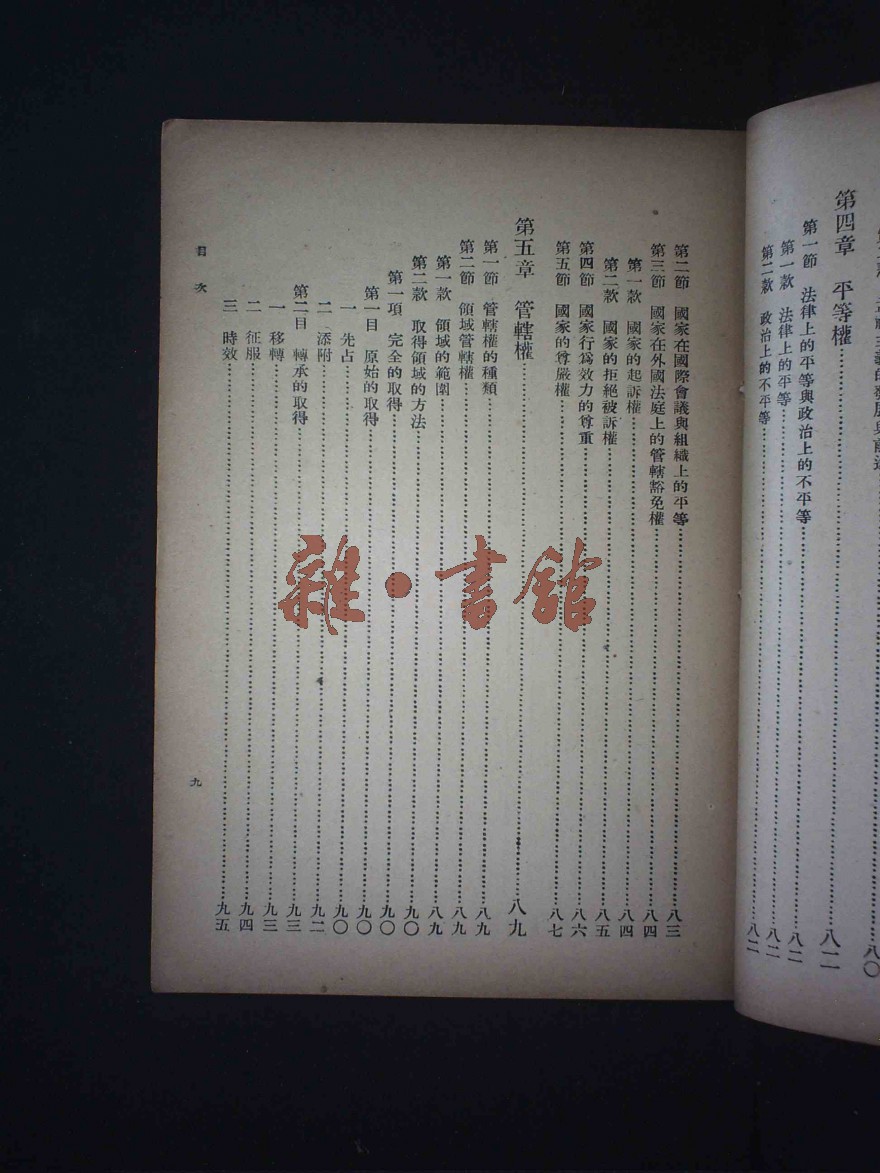 第四章　平等權……八二
第一節　法律上的平等與政治上的不平等……八二
第一款　法律上的平等……八二
第二款　政治上的不平等……八二
第二節　國家在國際會議與組織上的平等……八三
第三節　國家在外國法庭上的管轄豁免權……八四
第一款　國家的起訴權……八四
第二款　國家的拒絕被訴權……八五
第四節　國家行爲效力的尊重……八六
第五節　國家的尊嚴權……八七
第五章　管轄權……八九
第一節　管轄權的種類……八九
第二節　領域管轄權……八九
第一款　領域的範圍……八九
第二款　取得領域的方法……九〇
第一項　完全的取得……九〇
第一目　原始的取得……九〇
一　先占……九〇
二　添附……九二
第二目　轉承的取得……九三
一　移轉……九三
二　征服……九四
三　時效……九五
目次
九
雜·書館